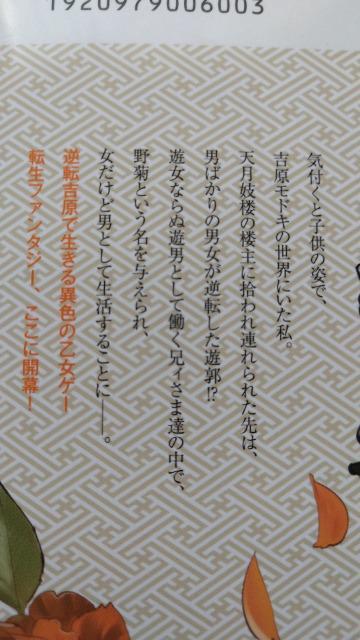 1920979006003
気付くと子供の姿で、
吉原モドキの世界にいた私。
天月妓楼の楼主に拾われ連れられた先は、
男ばかりの男女が逆転した遊郭!?
遊女ならぬ遊男として働く兄ィさま達の中で、
野菊という名を与えられ、
女だけど男として生活することに――。
逆転吉原で生きる異色の乙女ゲー
転生ファンタジー、ここに開幕!